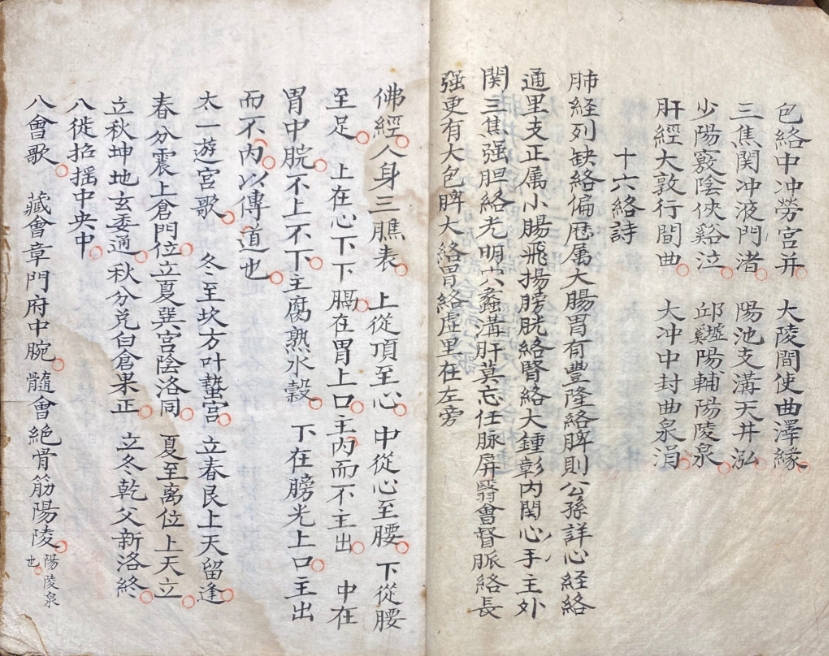 包絡中冲勞宮并　大陵間使曲澤緣
三焦関冲液門渚　陽池支溝天井泓
少陽竅陰俠谿泣　邱墟陽輔陽陵泉
肝經大敦行間曲　大冲中封曲泉涓
十六絡詩
肺経列缺絡偏歴属大腸胃有豐隆絡脾則公孫詳心経絡
通里支正属小腸飛揚膀胱絡腎絡大鍾彰内関心手主外
関三焦强胆絡光明穴蠡溝肝莫忘任脉屏翳會督脈絡長
强更有大包脾大絡胃絡虚里在左旁
佛經人身三膲表　上從頂至心　中從心至腰　下從腰
至足　上在心下下膈在胃上口主内而不主出　中在
胃中脘不上不下主腐熟水穀　下在膀光上口主出
而不内以傳道也
太一遊宮歌　冬至坎方叶蟄宮　立春艮上天留逢
春分震上倉門位立夏巽宮陰洛同　夏至离位上天立
立秋坤地玄委通秋分兌白倉果正　立冬乾父新洛終
八徙招摇中央中
八會歌　藏會章門府中脘髓會絶骨筋陽陵陽陵泉也